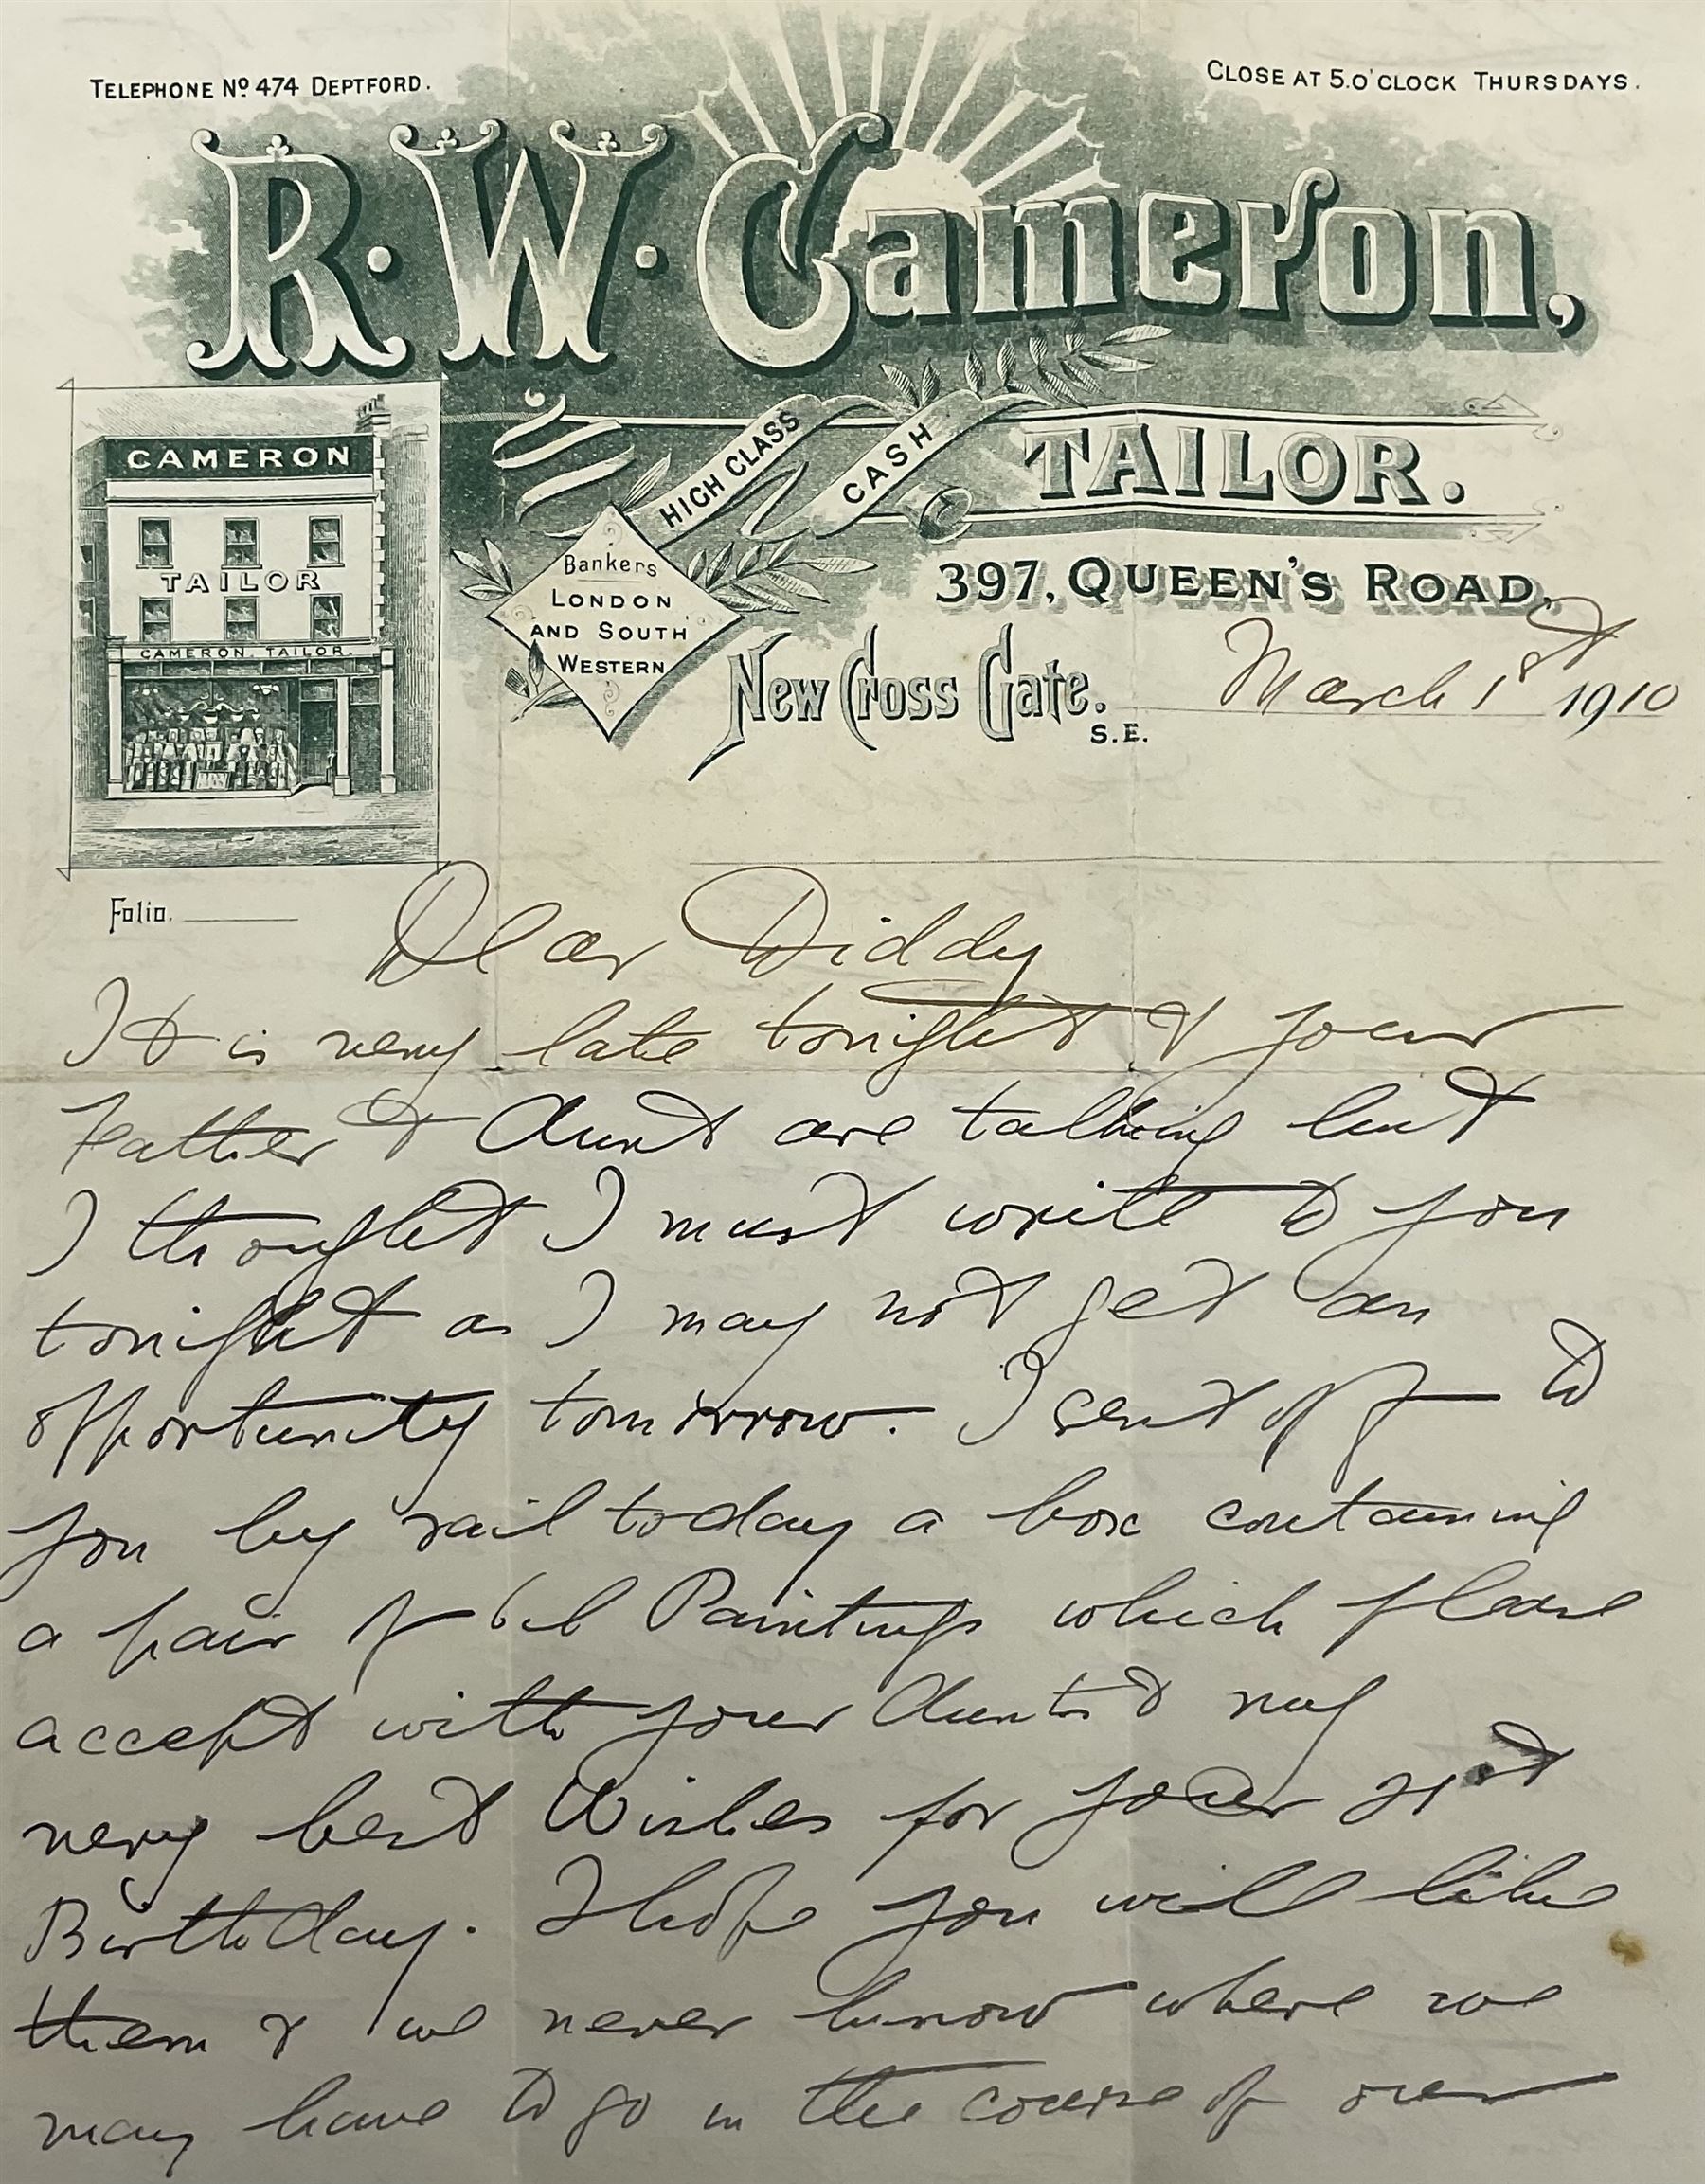 TELEPHONE Nº 474 DEPTFORD.
CLOSE AT 5.O'CLOCK THURSDAYS.
R.W.Cameron,
HIGH CLASS
CASH
TAILOR.
CAMERON
TAILOR
CAMERON. TAILOR.
Bankers
LONDON
AND SOUTH
WESTERN
397, QUEEN'S ROAD,
New Cross Gate.
S.E.
March 1st 1910
Folio.
Dear Diddy
It is very late tonight & your
Father & Aunt are talking but
I thought I must write to you
tonight as I may not get an
opportunity tomorrow. I sent off to
you by rail today a box containing
a pair of oil Paintings which please
accept with your Aunts & my
very best Wishes for your 21st
Birthday. I hope you will like
them & we never know where we
may have to go in the course of our